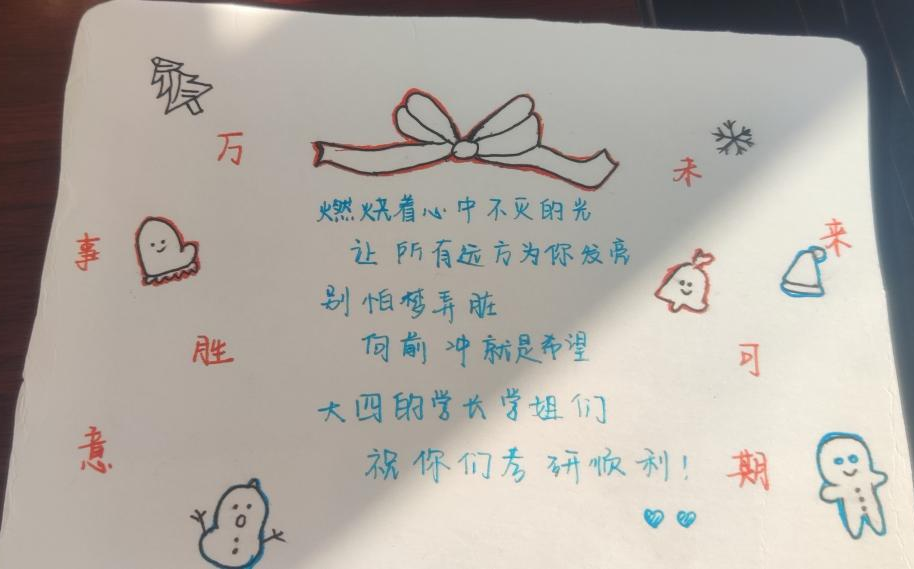 万事胜意
燃烧着心中不灭的光
让所有远方为你发亮
别怕梦弄脏
向前冲就是希望
大四的学长学姐们
祝你们考研顺利!
未来可期